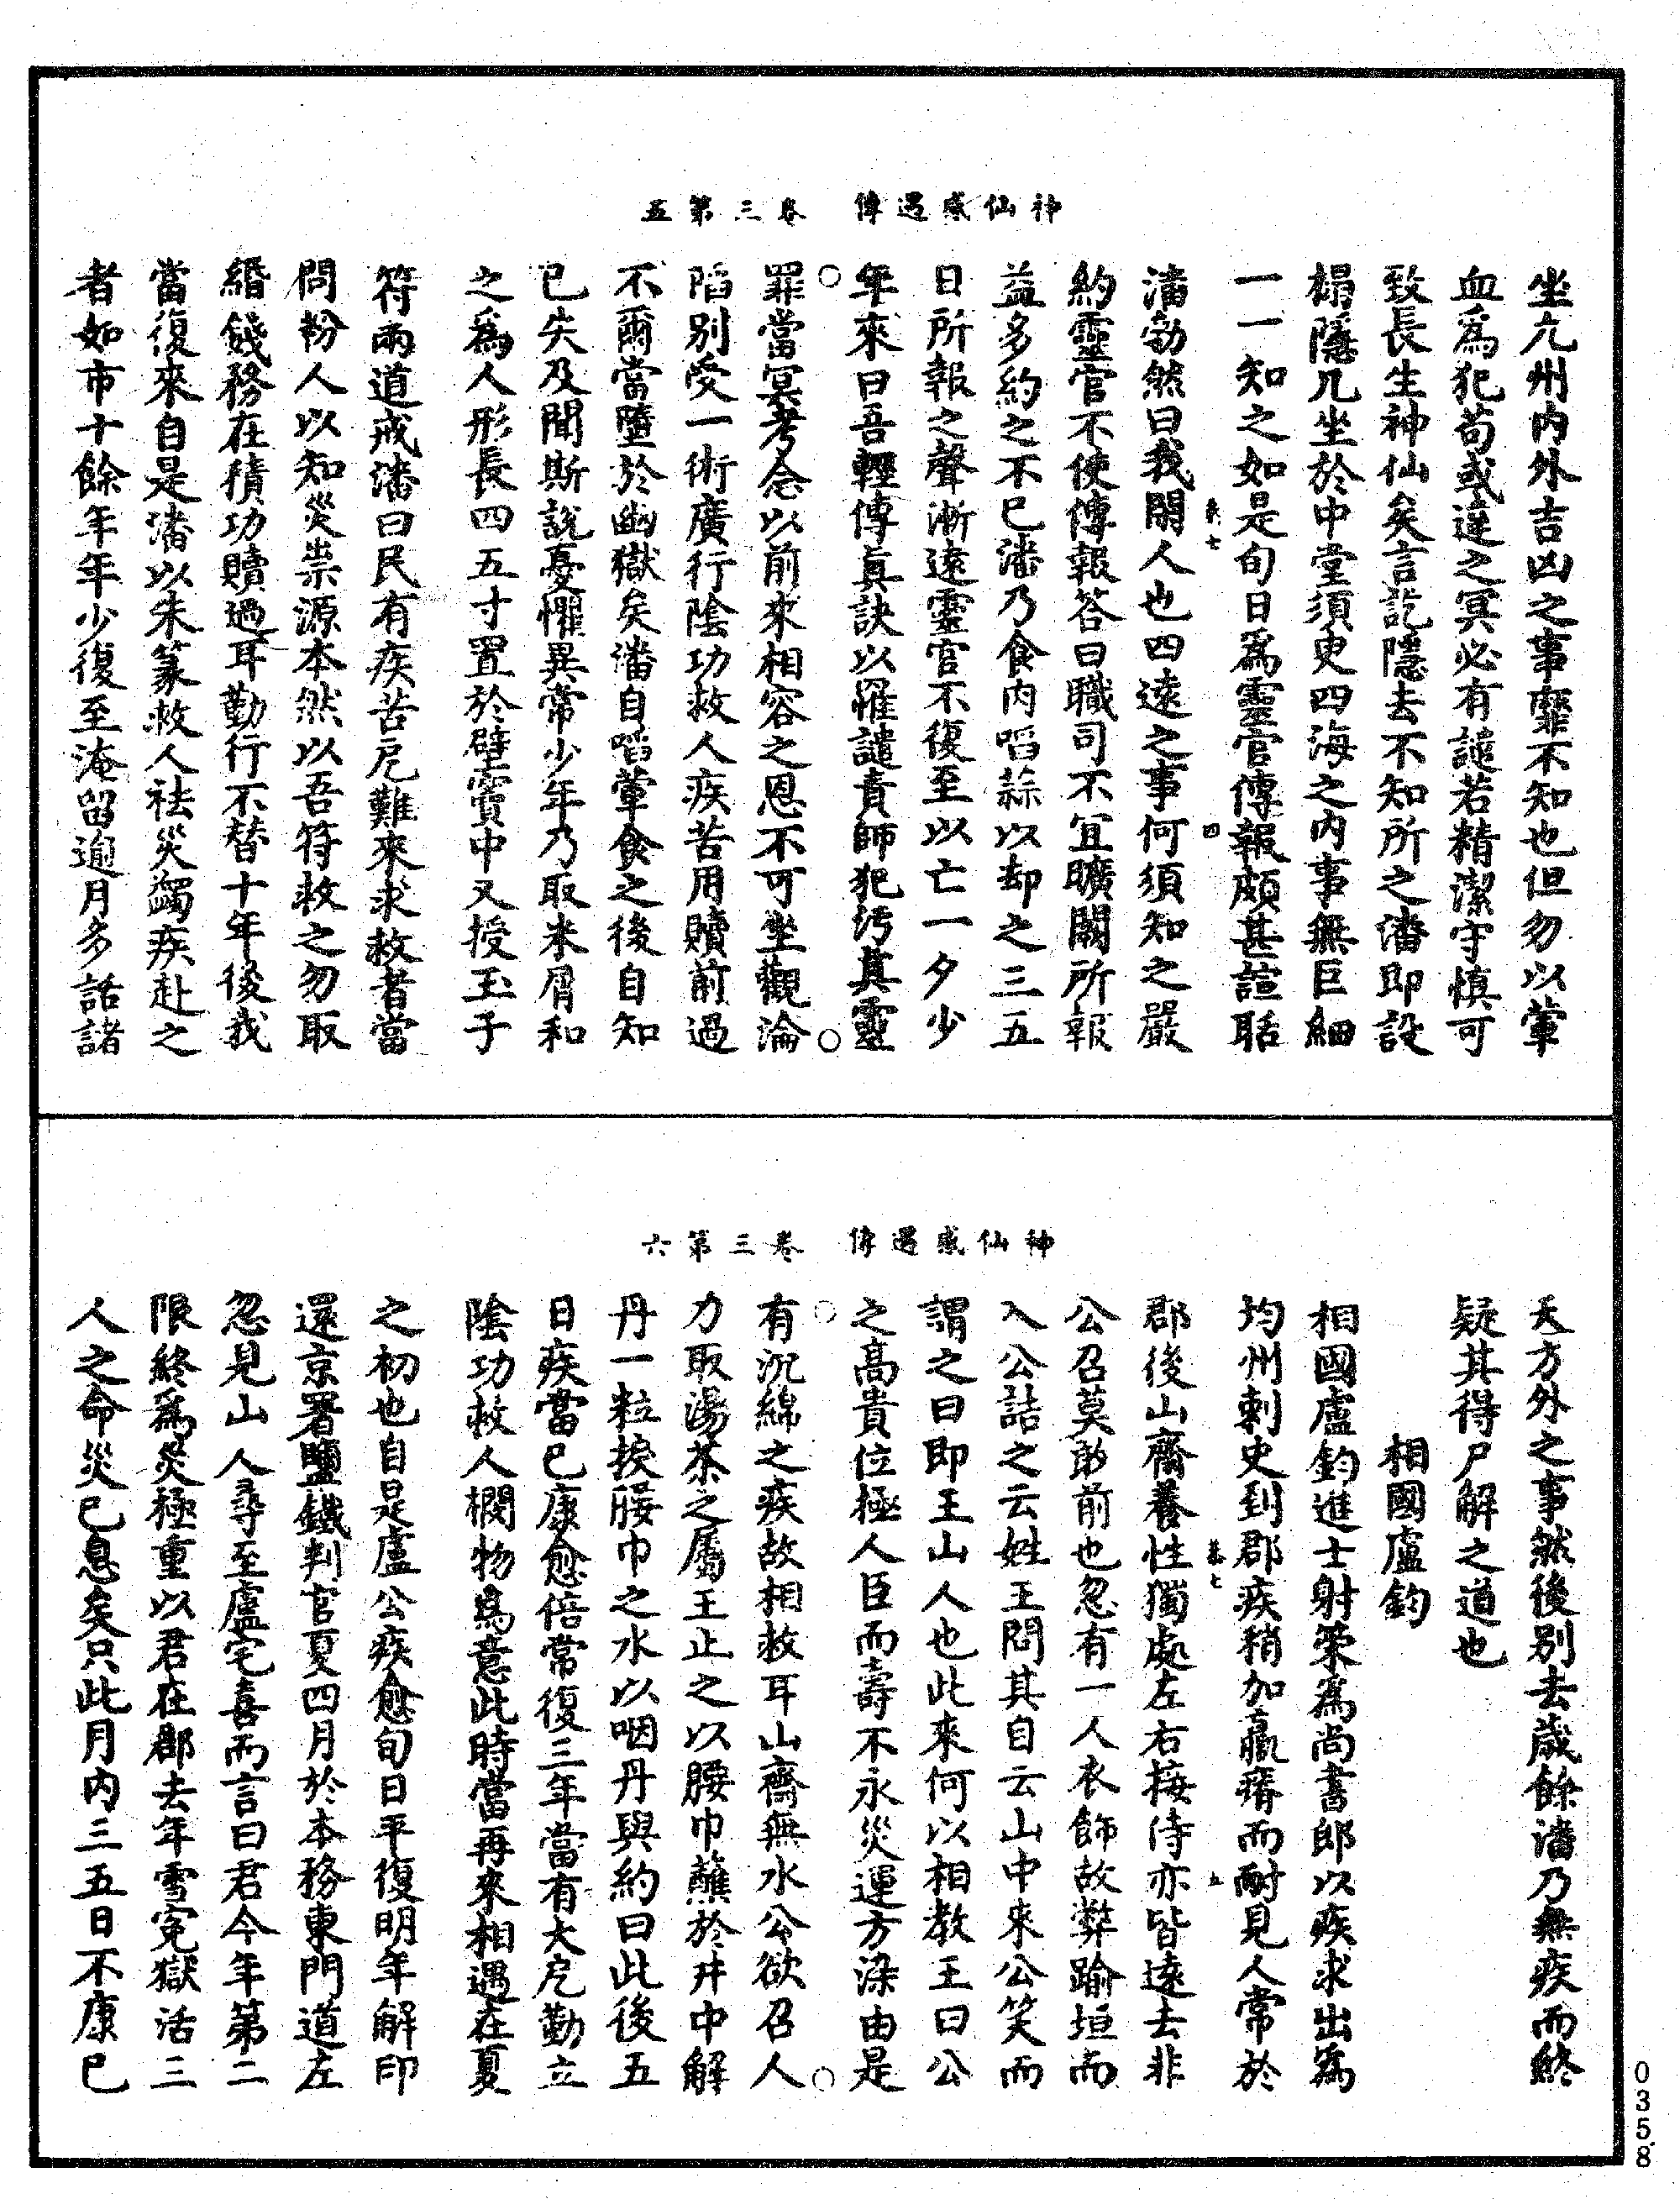 神仙感遇傳　卷三第五
坐亢州內外吉凶之事靡不知也但勿以葷
血爲犯苟或違之冥必有譴若精潔守愼可
致長生神仙矣言訖隱去不知所之潘即設
榻隱几坐於中堂須臾四海之內事無巨細
一一知之如是旬日爲靈官傳報頗甚諠聒
潘勃然曰我閑人也四遠之事何須知之嚴
約靈官不使傳報答曰職司不宜曠闕所報
益多約之不已潘乃食肉啗蒜以却之三五
日所報之聲漸遠靈官不復至以亡一夕少
年來曰吾輕傳眞訣以罹譴責師犯汚眞靈
罪當冥考念以前來相容之恩不可坐觀淪
陷別受一術廣行陰功救人疾苦用贖前過
不爾當墮於幽獄矣潘自啗葷食之後自知
已失及聞斯說憂懼異常少年乃取米屑和
之爲人形長四五寸置於壁竇中又授玉子
符兩道戒潘曰民有疾苦厄難來求救者當
問粉人以知災祟源本然以吾符救之勿取
緡錢務在積功贖過耳勤行不替十年後我
當復來自是潘以朱篆救人祛災蠲疾赴之
者如市十餘年年少復至淹留逾月多話諸
神仙感遇傳　卷三第六
天方外之事然後別去歲餘潘乃無疾而終
疑其得尸解之道也
相國盧鈞
相國盧鈞進士射策爲尚書郎以疾求出爲
均州刺史到郡疾稍加羸瘠而耐見人常於
郡後山齋養性獨處左右接侍亦皆遠去非
公召莫敢前也忽有一人衣飾故弊踰垣而
入公詰之云姓王問其自云山中來公笑而
謂之曰即王山人也此來何以相教王曰公
之高貴位極人臣而壽不永災運方深由是
有沉綿之疾故相救耳山齋無水公欲召人
力取湯茶之屬王止之以腰巾蘸於井中解
丹一粒捩腰巾之水以咽丹與約曰此後五
日疾當已康愈倍常復三年當有大厄勤立
陰功救人憫物爲意此時當再來相遇在夏
之初也自是盧公疾愈旬日平復明年解印
還京署鹽鐵判官夏四月於本務東門道左
忽見山人尋至盧宅喜而言曰君今年第二
限終爲災極重以君在郡去年雪寃獄活三
人之命災已息矣只此月內三五日不康已
0358